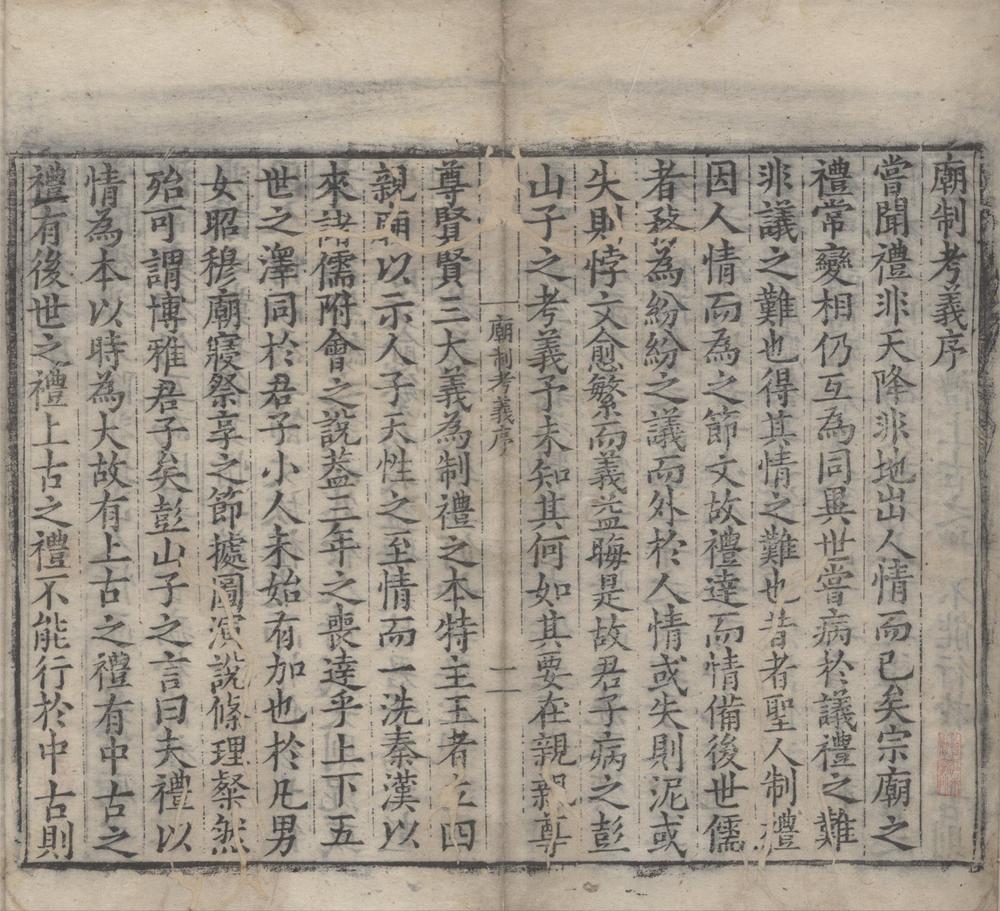 廟制考義序
嘗聞禮非天降非地出人情而已矣宗廟之
禮常變相仍互為同異世嘗病於議禮之難
非議之難也得其情之難也昔者聖人制禮
因人情而為之節文故禮達而情備後世儒
者務為紛紛之議而外於人情或失則泥或
失則悖文愈繁而義益晦是故君子病之彭
山子之考義予未知其何如其要在親親尊
廟制考義序
一
尊賢賢三大義為制禮之本特主王者立四
親廟以示人子天性之至情而一洗秦漢以
來諸儒附會之說葢三年之喪達乎上下五
世之澤同於君子小人未始有加也於凡男
女昭穆廟寢祭享之節據圖演說條理粲然
殆可謂博雅君子矣彭山子之言曰夫禮以
情為本以時為大故有上古之禮有中古之
禮有後世之禮上古之禮不能行於中古則